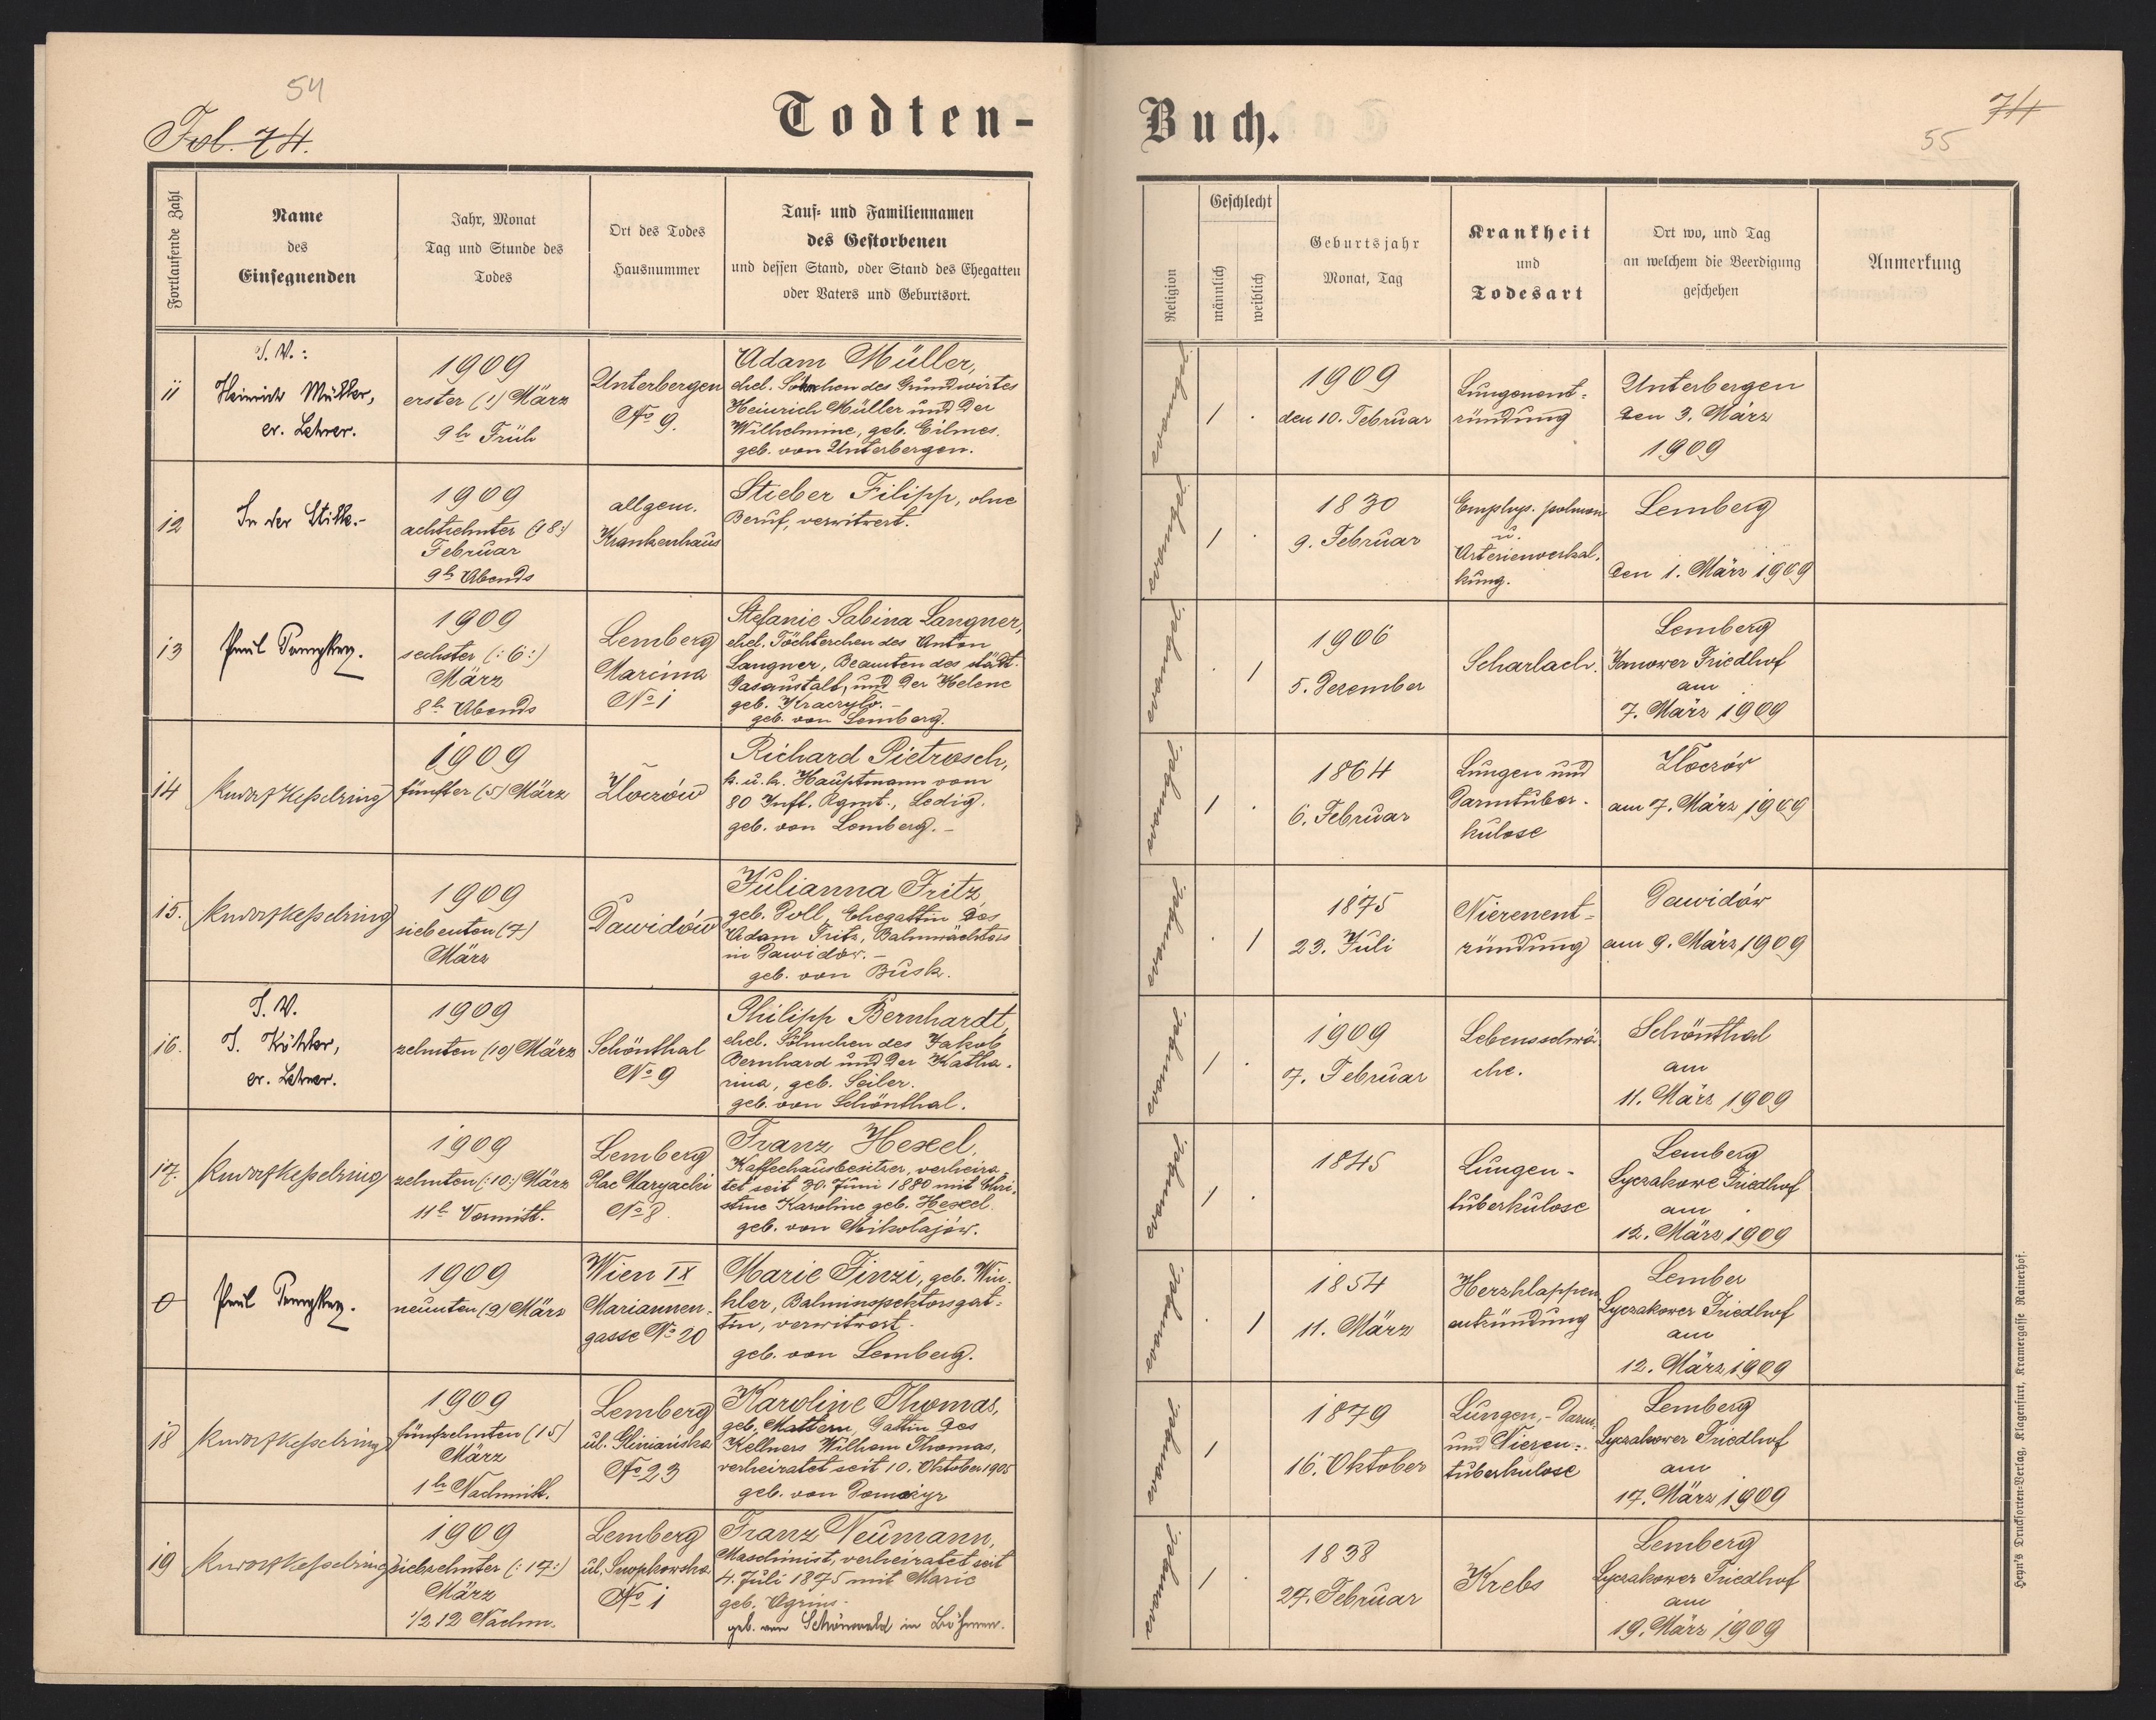 54
Fol. 74.
Todten-
Fortlaufende Zahl
Name
des
Einsegnenden
Jahr, Monat
Tag und Stunde des
Todes
Ort des Todes
Hausnummer
Tauf- und Familiennamen
des Gestorbenen
und dessen Stand, oder Stand des Ehegatten
oder Vaters und Geburtsort.
11
I. V.:
Heinrich Müller,
ev. Lehrer.
1909
erster (1) März
9h Früh
Unterbergen
No 9.
Adam Müller,
ehel. Söhnchen des Grundwirtes
Heinrich Müller und der
Wilhelmine, geb. Gilmes.
geb. von Unterbergen.
12
In der Stille.-
1909
achtzehnter (18:)
Februar
9h Abends
allgem.
Krankenhaus
Stieber Filipp, ohne
Beruf, verwitwert.
13
Paul
1909
sechster (:6:)
März
8h Abends
Lemberg
Marcina
No 1
Stefanie Sabina Langner,
ehel. Töchterchen des Anton
Langner, Beamten des städt.
Gasanstalt, und der Helene
geb.
geb. von Lemberg.
14
Kesselring
1909
fünfter (5) März
Złoczów
Richard Pietrosch,
k. u. k. Hauptmann vom
80 Inft. Rgmt., Ledig.
geb. von Lemberg. -
15.
Kesselring
1909
siebenten (7)
März
Dawidów
Julianna Fritz
geb. Doll, Ehegattin des
Adam Fritz, Bahnwächters
in Dawidów. -
geb. von Busk.
16.
I. V.
J. Köhler,
ev. Lehrer.
1909
zehnten (10) März
Schönthal
No 9
Philipp Bernhardt,
ehel. Söhnchen des Jakob
Bernhard und der Katha-
rina, geb. Seiler.
geb. von Schönthal.
17.
Kesselring
1909
zehnten (:10:) März
11h Vormitt.
Lemberg
Plac Maryacki
No 8
Franz Hexel,
Kaffeehausbesitzer, verheira-
tet seit 30. Juni 1880 mit Chri-
stine Karoline geb. Hexel.
geb. von Mikolajów.
0
Paul
1909
neunten (9) März
Wien IX
Mariannen-
gasse No 20
Marie Finzi, geb. Win-
kler, Bahninspektorsgat-
tin, verwitwert.
geb. von Lemberg.
18
Kesselring
1909
fünfzehnten (15)
März
1h Nachmitt.
Lemberg
ul. Gliniańska
No 23
Karoline Thomas,
geb. Mattern, Gattin des
Kellners Wilhem Thomas,
verheiratet seit 10. Oktober 1905
geb. von
19
Kesselring
1909
siebzehnter (:17:)
März
1/2 12 Nachm.
Lemberg
ul. Snopkowska
No 1
Franz Neumann,
Maschinist, verheiratet seit
4. Juli 1875 mit Marie
geb.
geb. von Schönwald in Böhmen.
Buch.
74
55
Religion
Geschlecht
männlich
weiblich
Geburtsjahr
Monat, Tag
Krankheit
und
Todesart
Ort wo, und Tag
an welchem die Beerdigung
geschehen
Anmerkung
1
.
1909
den 10. Februar
Lungenent-
zündung
Unterbergen
den 3. März
1909
1
.
1830
9. Februar
u.
Arterienverkal-
kung.
Lemberg
den 1. März 1909
.
1
1906
5. Dezember
Scharlach.
Lemberg
Janower Friedhof
am
7. März 1909
1
.
1864
6. Februar
Lungen und
Darmtuber-
kulose
Złoczów
am 7. März 1909
.
1
1875
23. Juli
Nierenent-
zündung
Dawidów
am 9. März 1909
1
.
1909
7. Februar
Lebensschwä-
che.
Schönthal
am
11. März 1909
1
.
1845
Lungen-
tuberkulose
Lemberg
Lyczakowe Friedhof
am
12. März 1909
.
1
1854
11. März
Herzklappen
entzündung
Lember
Lyczakower Friedhof
am
12. März 1909
1
1879
16. Oktober
Lungen,- Darm-
und Nieren-
tuberkulose
Lemberg
Lyczakower Friedhof
am
17. März 1909
1
.
1838
27. Februar
Krebs
Lemberg
Lyczakower Friedhof
am
19. März 1909
Heyn's Drucksorten-Verlag, Klagenfurt, Kramergasse Rainerhof.